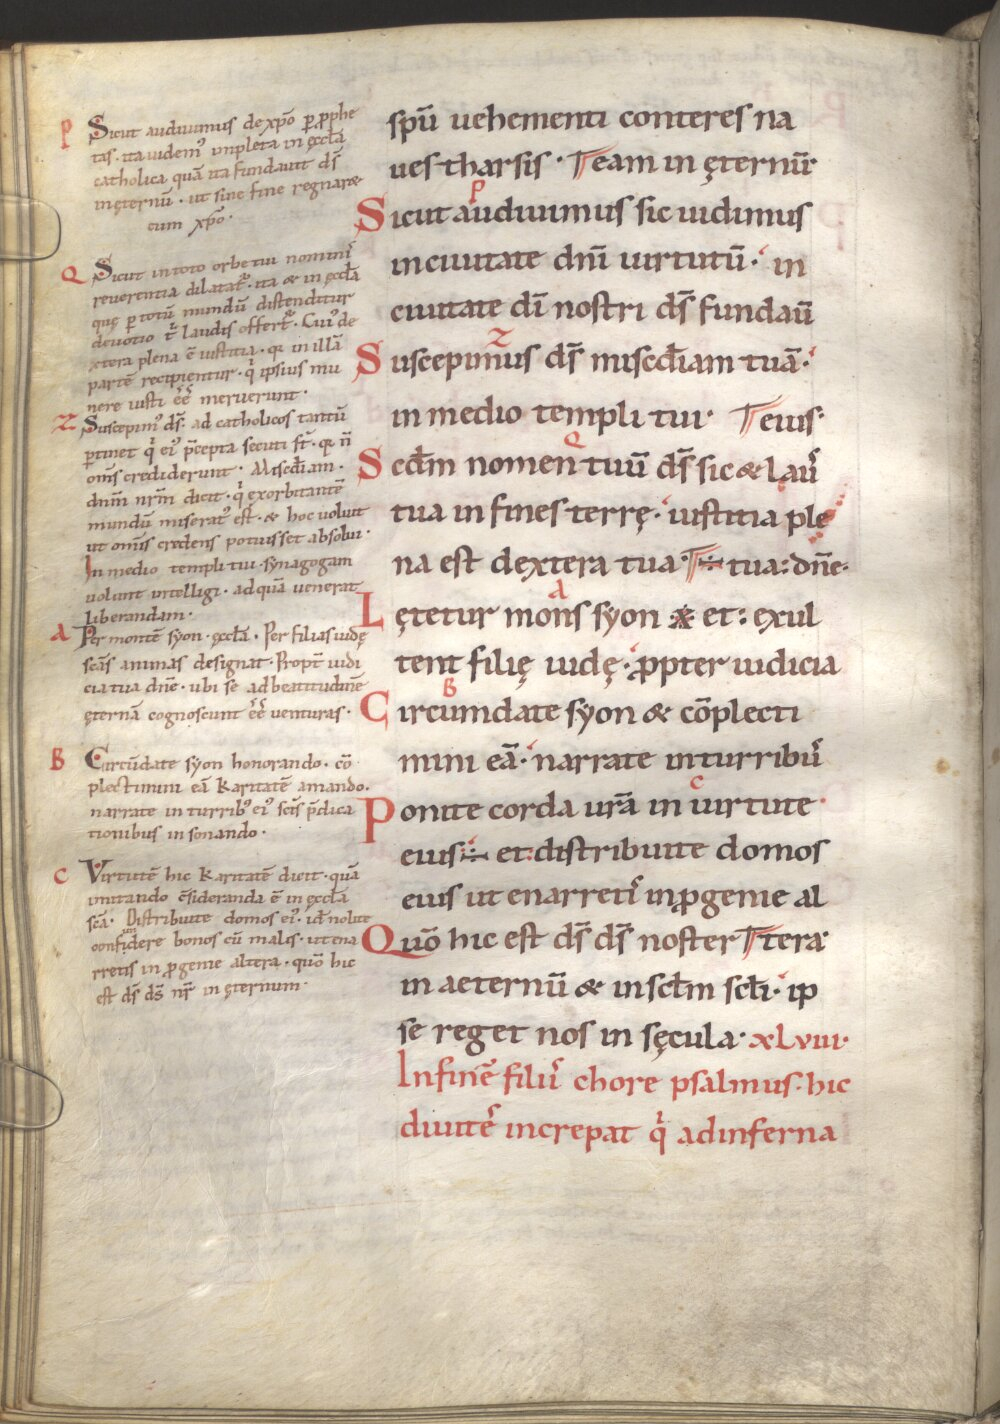 P Sicut audiuimus de xp̄o p̱ ꝓphe
tas. ita uidem᾽ impleta in ęccl̄a
catholica quā ita fundauit d̄s
in ęternū. ut sine fine regnaret
cum xp̄o.
Q Sicut in toto orbe tui nominis
reuerentia dilatat᷑. ita & in ęccl̄a
quę p̱ totū mundū distenditur
deuotio t̄ laudis offert᷑. Cui᾽ de
xtera plena ē iustitia. qr in illā
partē recipientur. q̇ ipsius mu
nere iusti ēē meruerunt.
Z Suscepim᾽ d̄s. ad catholicos tantū
p̱tinet q̇ ei᾽ p̄cepta secuti st̄. qr n̄
om̄s crediderunt. Misc̄diam.
dnm̄ nrm̄ dicit. q̇ exorbitantē
mundū miserat᾽ est. & hoc uoluit
ut om̄is credens potuisset absolui.
In medio templi tui. synagogam
uolunt intelligi. ad quā uenerat
liberandam.
A Per montē syon. ęccl̄a. Per filias iudę
sc̄as animas designat. Propt᷑ iudi
cia tua dn̄e. ubi se ad beatitudinē
ęternā cognoscunt ēē uenturas.
B Circūdate syon honorando. cō
plectimini eā Karitatē amando.
narrate in turrib᾽ ei᾽ sc̄is p̄dica
tionibus insonando.
C Virtutē hic Karitatē dicit. quā
imitando c̄sideranda ē in ęccl̄a
sc̄a. Distribuite domos ei᾽. id nolite
confidere bonos cū malis. ut ena
rretis in ꝓgenie altera. quō hic
est d̄s d̄s nr̄ in ęternum.
spū uehementi conteres na
ues tharsis. Team in ęternū᷑
P
Sicut audiuimus sic uidimus
in ciuitate dnī uirtutū. in
ciuitate dī nostri d̄s fundaū
Z
Suscepimus d̄s misc̄diam tuā.
in medio templi tui. Teius.
Q
Scdm̄ nomen tuū d̄s sic & laū
tua in fines terrę. iustitia ple
na est dextera tua. T÷ tua: dn̄e.
A
Lętetur mons syon ※ et: exul
tent filię iudę. ꝓpter iudicia
B
Circumdate syon & cōplecti
mini eā. narrate in turribus
C
Ponite corda ur̄a in uirtute.
eius ÷ et: distribuite domos
eius ut enarretis in ꝓgenie al
Quō hic est d̄s d̄s noster Ttera.
in aeternū & in sclm̄ scl̄i. ip
se reget nos in sęcula. xLviii.
In finē filiis chore psalmus. hic
diuites increpat q̇ ad inferna